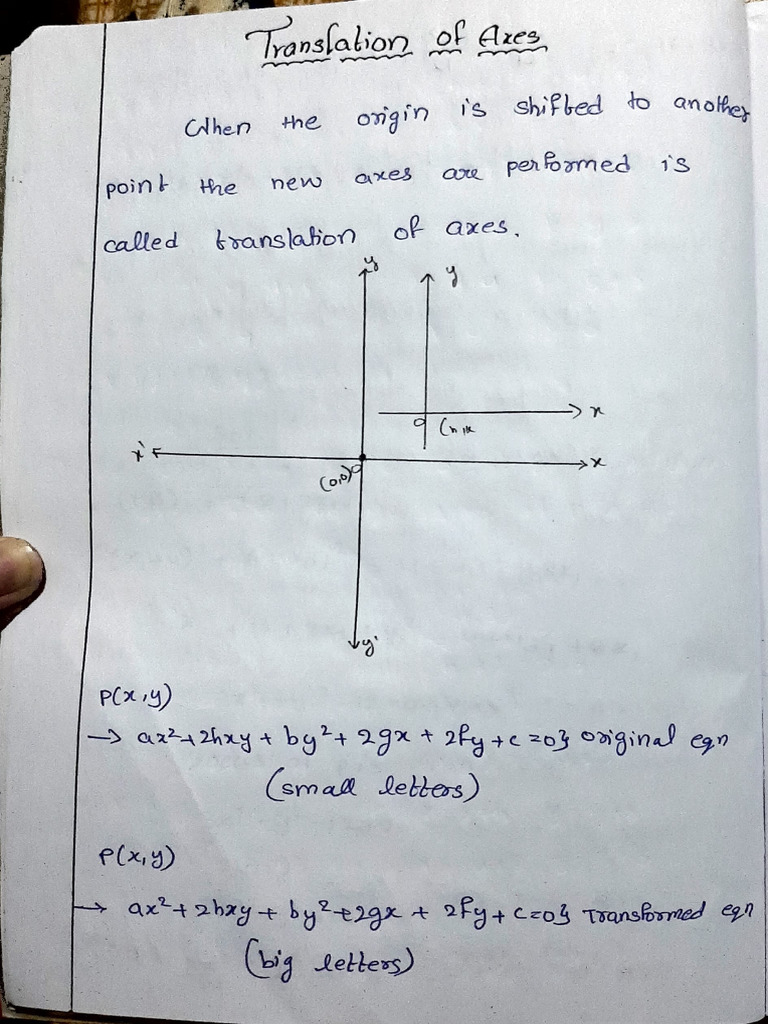 Translation of Axes
When the origin is shifted to another
point the new axes are performed is
called translation of axes.
y
y
x
O
x'
x
(0,0)
O
y'
P(x,y)
→ ax²+2hxy + by²+ 2gx + 2fy + c =0} original eqn
(small letters)
P(x,y)
→ ax²+2hxy + by²+2gx + 2fy+c=0} Transformed eqn
(big letters)